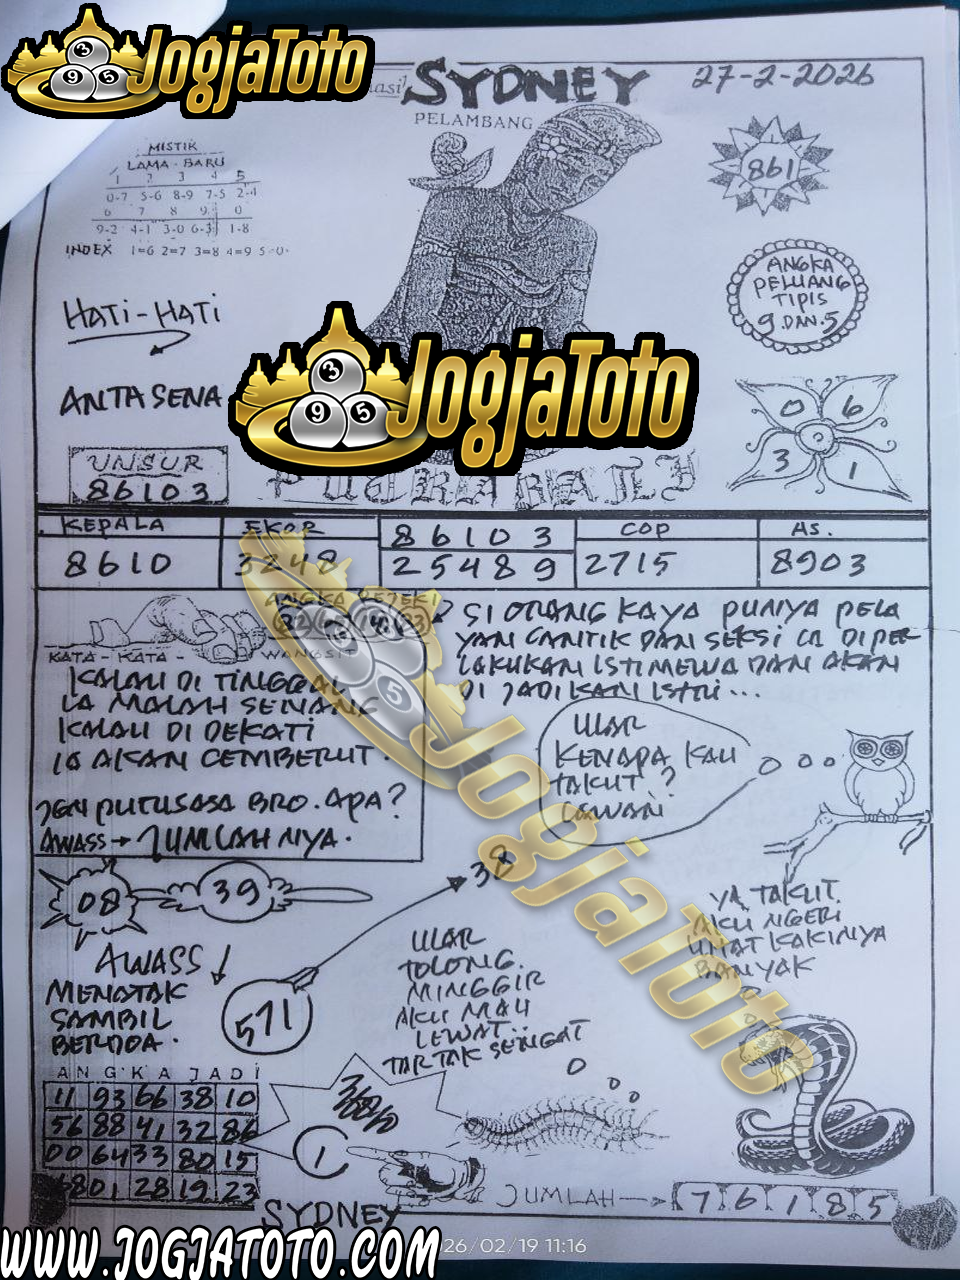 JogjaToto
SYDNEY
27-2-2026
PELAMBANG
MISTIK
LAMA - BARU
1 2 3 4 5
0-7 5-6 8-9 7-5 2-4
6 7 8 9 0
9-2 4-1 3-0 6-3 1-8
INDEX 1=6 2=7 3=8 4=9 5=0
861
ANGKA
PELUANG
TIPIS
9 DAN 5
HATI-HATI
ANTASENA
JogjaToto
0 6
3 1
UNSUR
86103
KEPALA EKOR 86103 COP AS.
8610 3248 25489 2715 8903
KATA - KATA - WANGSIT
KALAU DI TINGGAL
IA MALAH SENANG
KALAU DI DEKATI
IA AKAN CEMBERUT.
JGN PUTUSASA BRO. APA?
AWASS → JUMLAHNYA.
SI ORANG KAYA PUNYA PELA
YAN CANTIK DAN SEKSI IA DIPER
LAKUKAN ISTIMEWA DAN AKAN
DI JADIKAN ISTRI...
ULAR
KENAPA KAU
TAKUT?
LAWAN
JogjaToto
08 39
38
AWASS
MENATAK
SAMBIL
BERDOA.
571
ULAR
TOLONG.
MINGGIR
AKU MAU
LEWAT..
TAK TAK SENGAT
YA TAKUT.
AKU NGERI
LIHAT KAKINYA
BANYAK
ANGKA JADI
11 93 66 38 10
56 88 41 32 86
00 64 33 80 15
68 01 28 19 23
1
JUMLAH → 7 6 1 8 5
SYDNEY
26/02/19 11:16
WWW.JOGJATOTO.COM